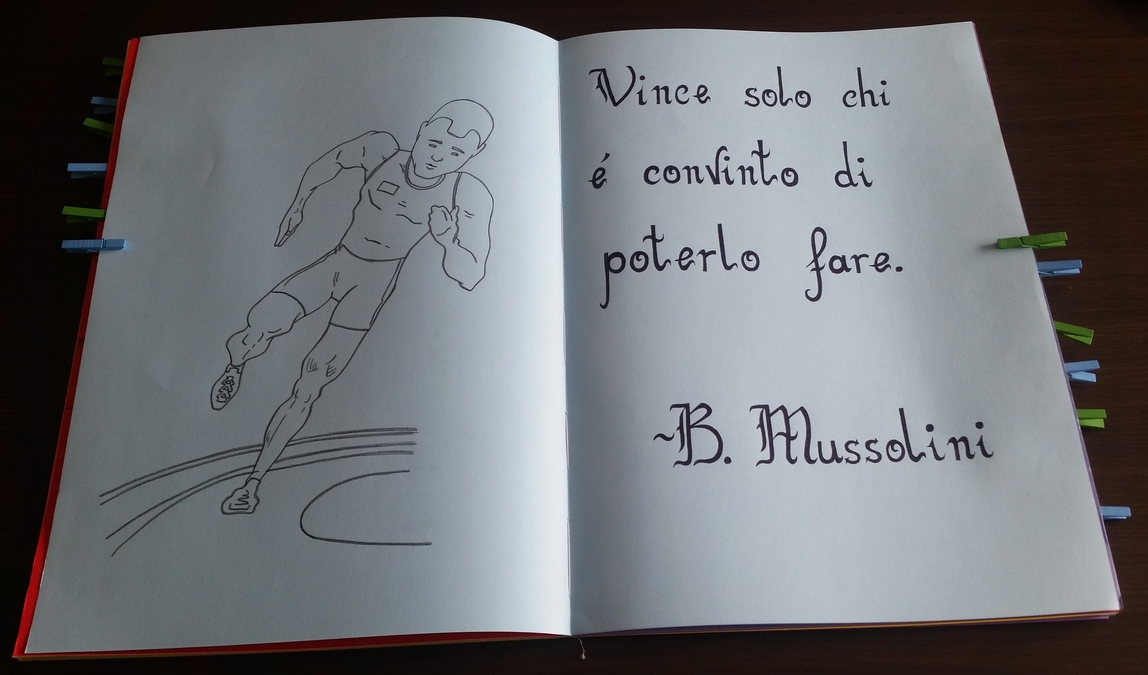 Vince solo chi
é convinto di
poterlo fare.
~B. Mussolini